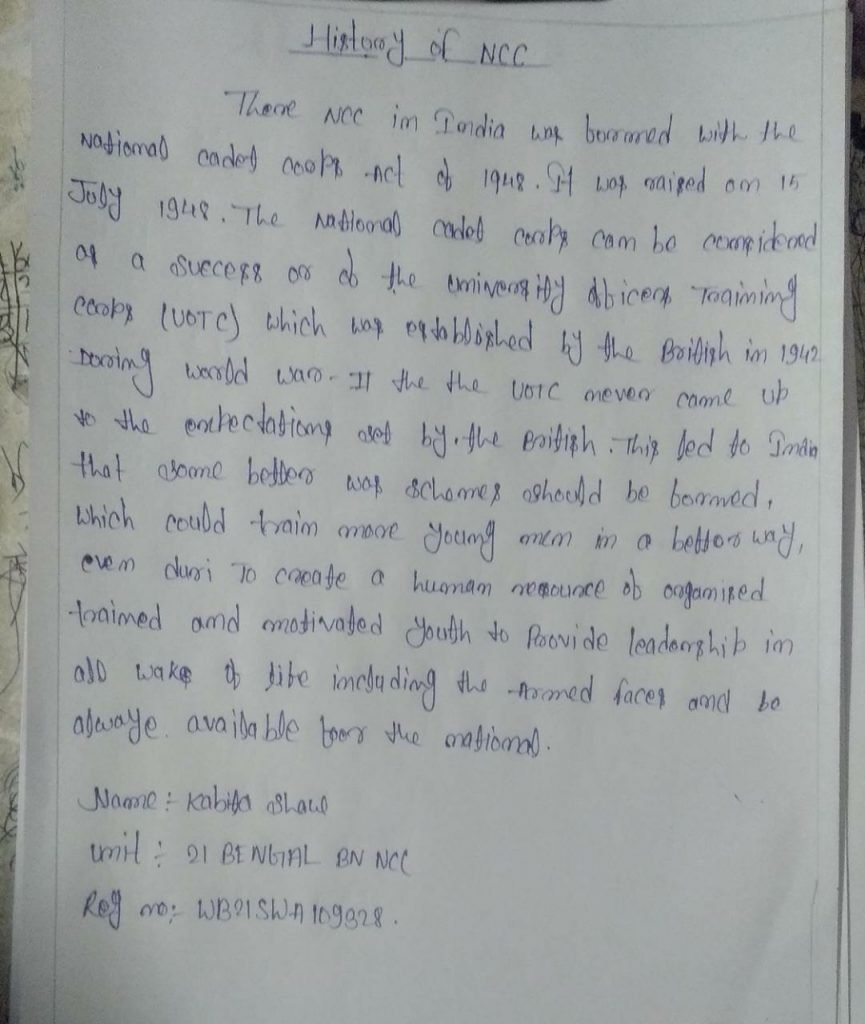 History of NCC
There NCC in India was borned with the
National cadet corps Act of 1948. It was raised on 15
July 1948. The National cadet corps can be considered
as a success or of the university officers Training
corps (UOTC) which was established by the British in 1942
During world war-II the the UOTC never came up
to the expectations set by the British. This led to India
that some better was schemes should be formed,
which could train more young men in a better way,
even duri To create a human resource of organised
trained and motivated youth to Provide leadership in
all wake of life including the Armed faces and be
always available for the national.
Name : Kabita Shaw
Unit : 21 BENGAL BN NCC
Reg no: WB21SWA109328.